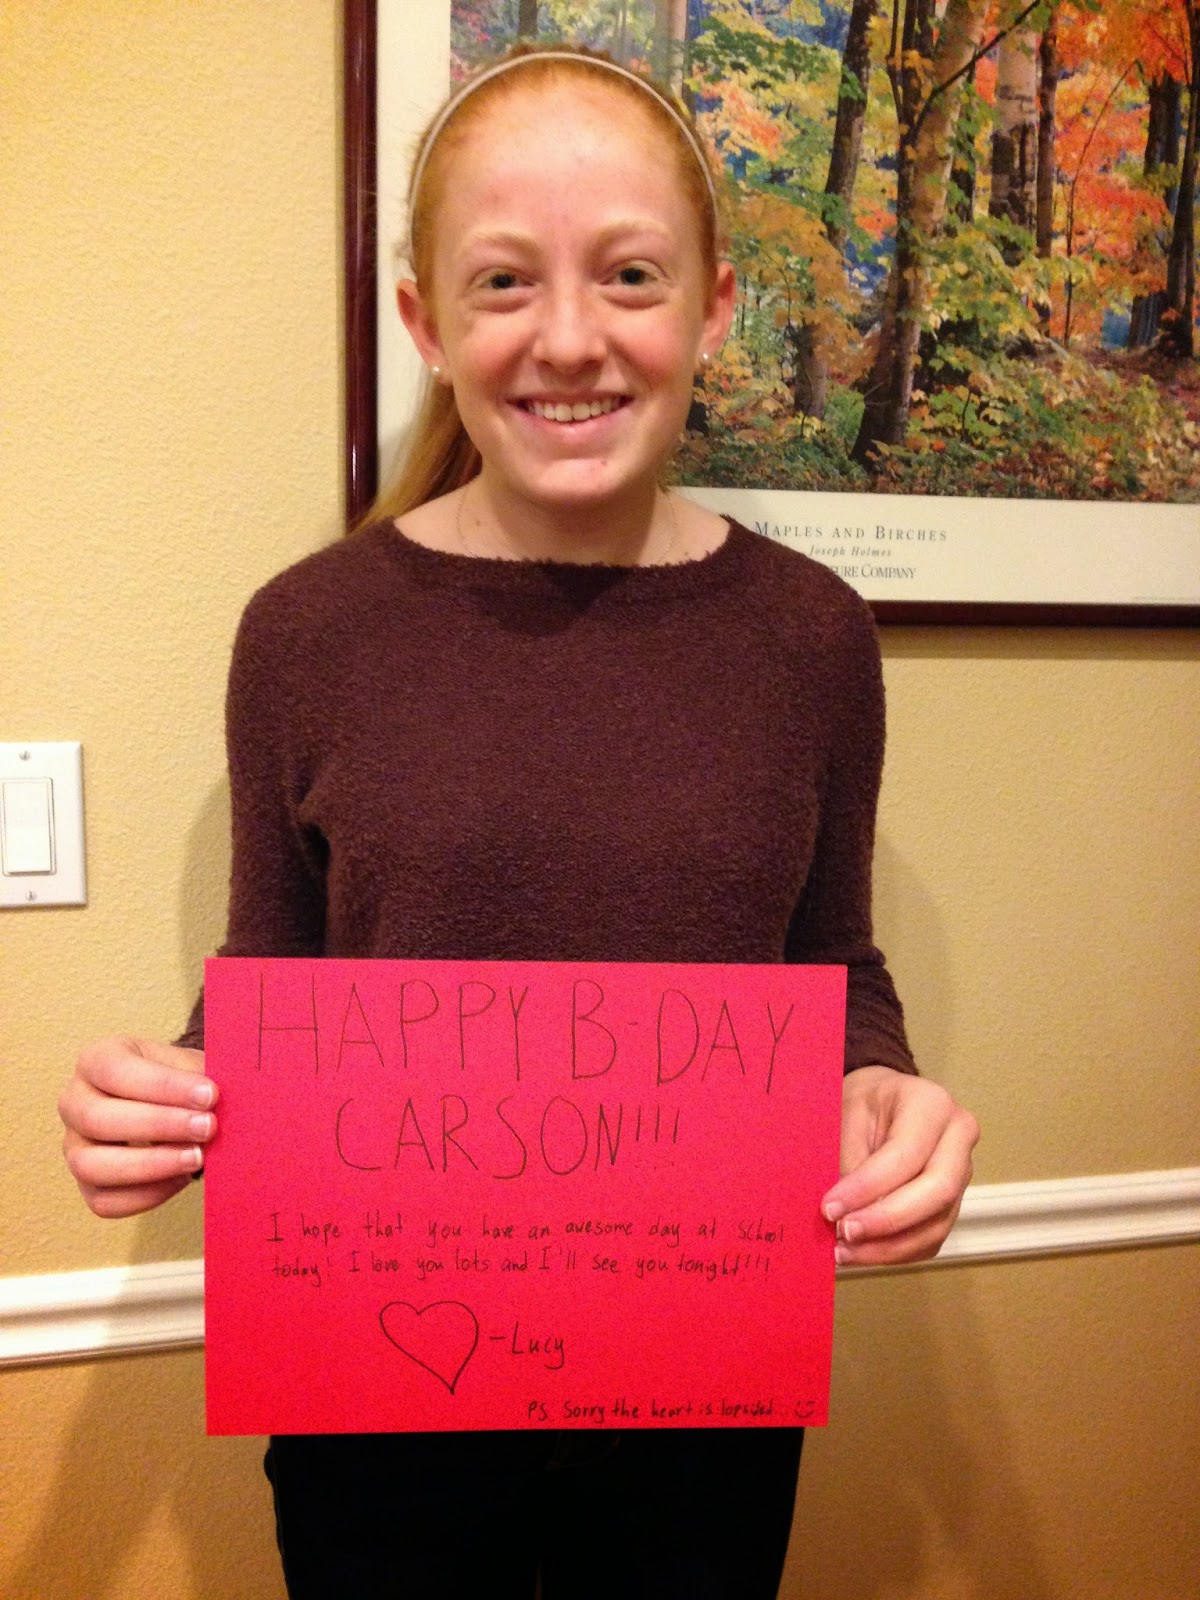 MAPLES AND BIRCHES
Joseph Holmes
URE COMPANY
HAPPY B-DAY
CARSON!!!
I hope that you have an awesome day at school
today! I love you lots and I'll see you tonight!!!
-Lucy
PS Sorry the heart is lopsided